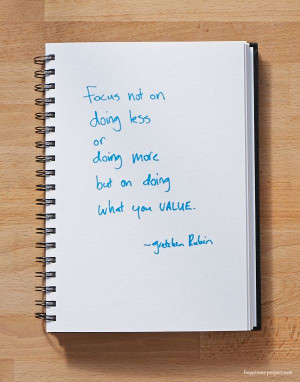 Focus not on
doing less
or
doing more
but on doing
what you VALUE.
—gretchen Rubin
happinessproject.com